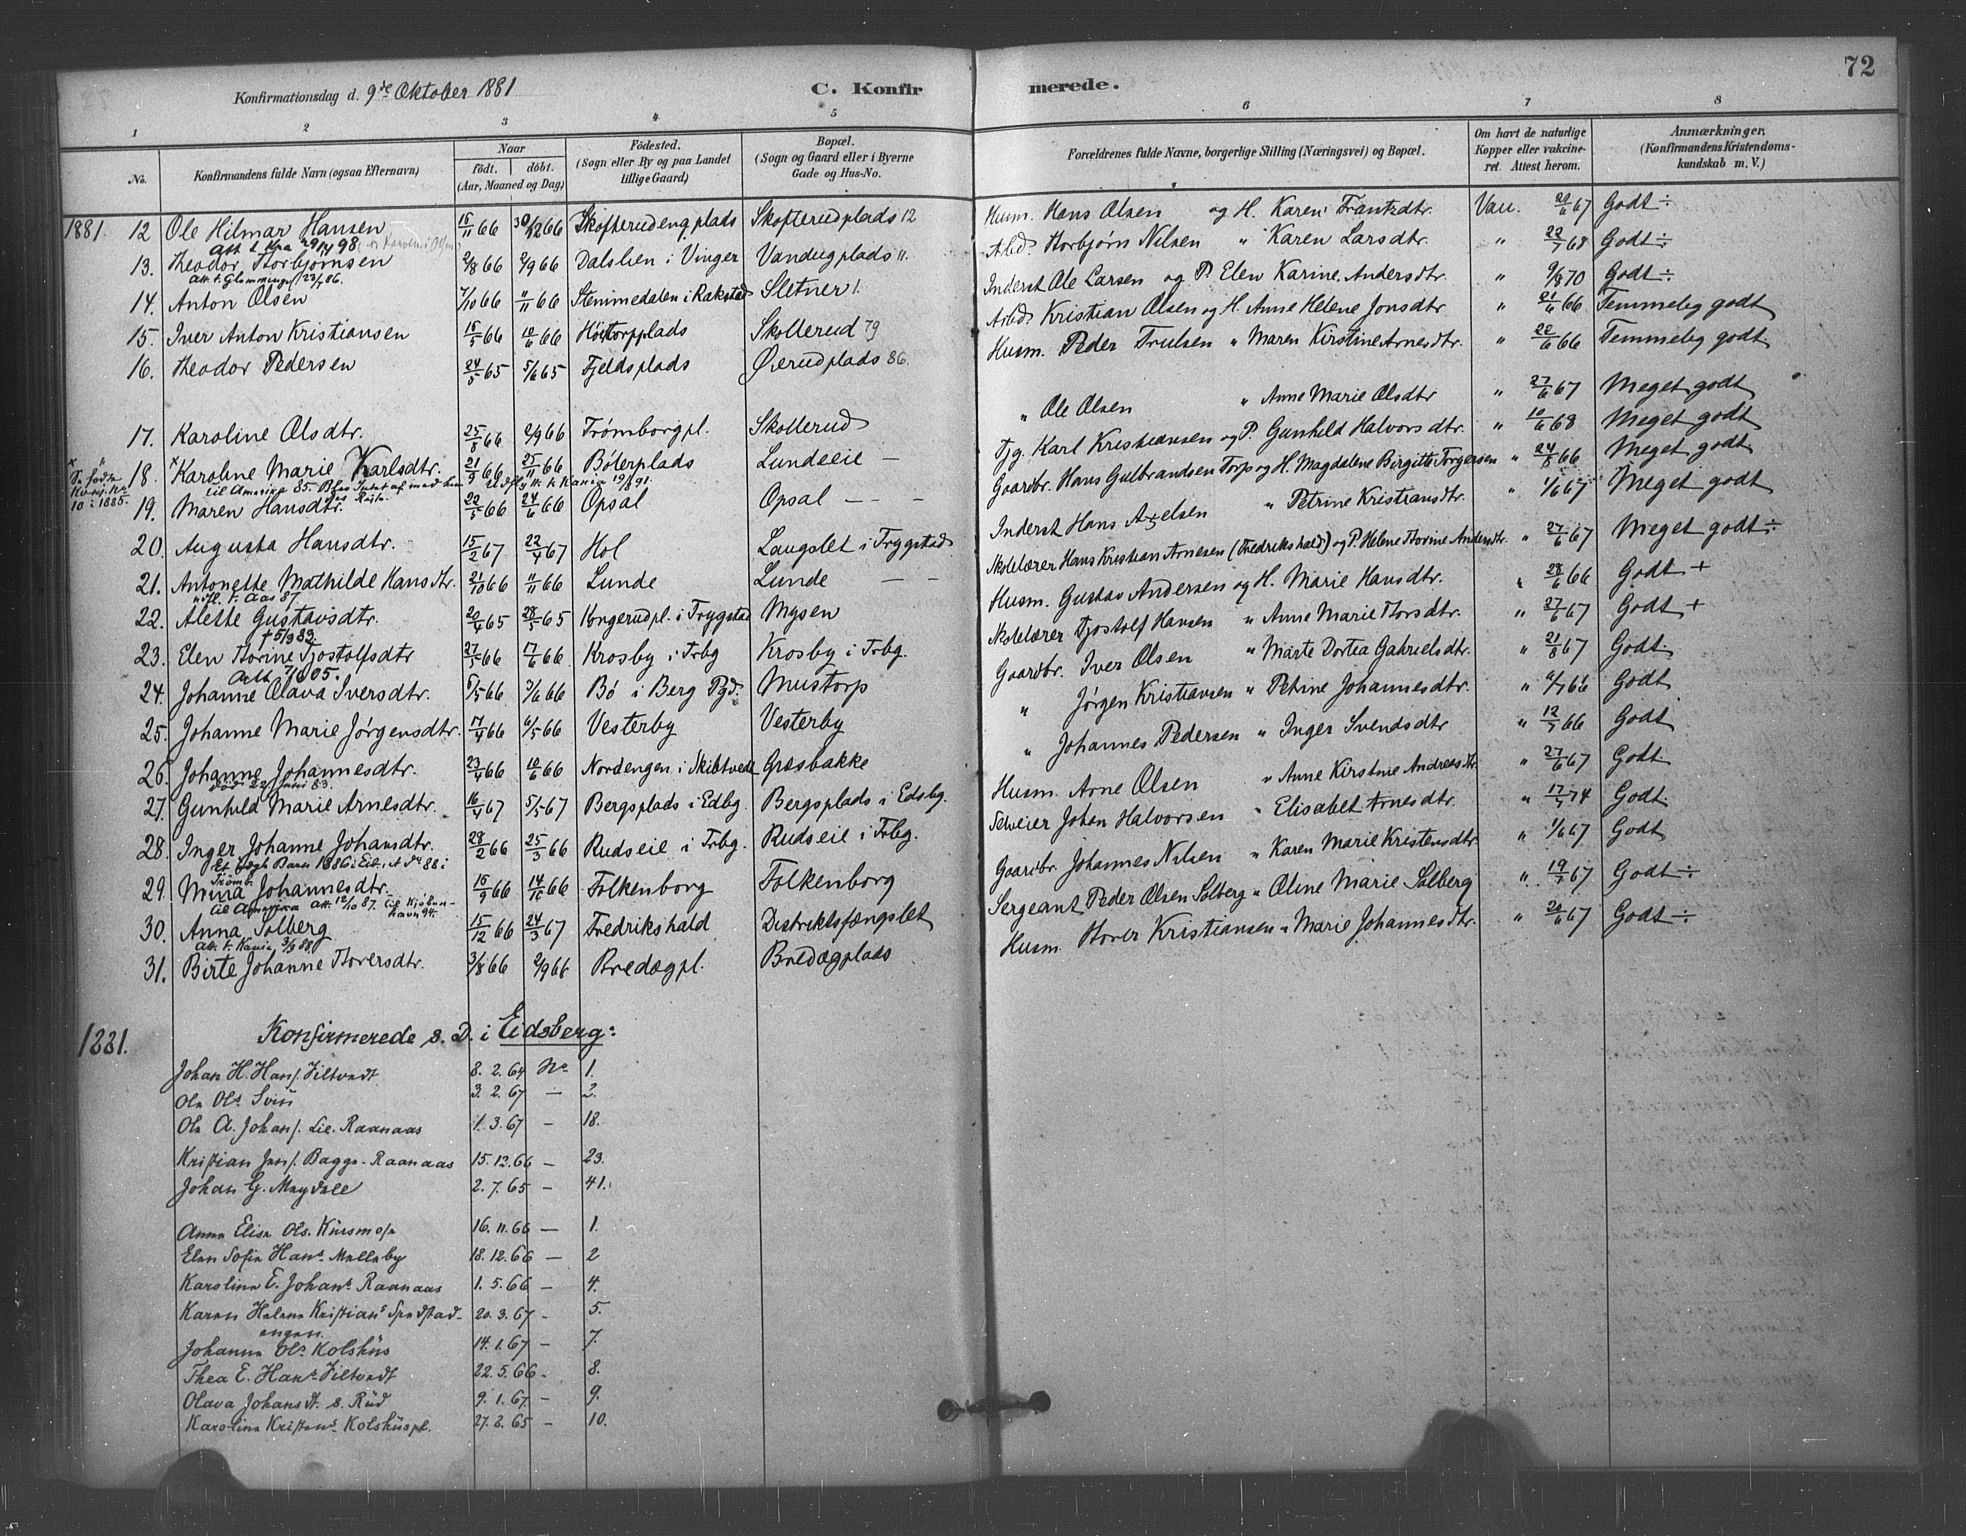 72
Konfirmationsdag d. 9de Oktober 1881
C. Konfirmerede.
1 2 3 4 5 6 7 8
No.
Konfirmandens fulde Navn (ogsaa Efternavn)
Naar
født. døbt.
(Aar, Maaned og Dag)
Fødested.
(Sogn eller By og paa Landet tillige Gaard)
Bopæl.
(Sogn og Gaard eller i Byerne Gade og Hus-No.
Forældrenes fulde Navne, borgerlige Stilling (Næringsvei) og Bopæl.
Om havt de naturlige Kopper eller vakcineret. Attest herom.
Anmærkninger,
(Konfirmandens Kristendomskundskab m. V.)
1881. 12 Ole Hilmar Hansen 15/11 66 30/12 66 Skofterudengplads Skofterudplads 12 Husm. Hans Olsen og H. Karen Frantzdtr. Vau. 20/6 67 Godt ÷
Att t. Kra 29/4 98
13. Theodor Thorbjørnsen 2/8 66 2/9 66 Dalslien i Vinger Vandugplads 11. Arbd. Thorbjørn Nilsen " Karen Larsdtr. " 22/7 68 Godt ÷
Att. t. Glemminge 23/1 06.
14. Anton Olsen 7/10 66 11/11 66 Stemmedalen i Rakstad Sletner 1. Inderst Ole Larsen og P. Elen Karine Andersdtr. " 9/8 70 Godt ÷
15. Iver Anton Kristiansen 15/5 66 10/6 66 Høitorpplads Skollerud 79 Arbd. Kristian Olsen og H. Anne Helene Jonsdtr. " 21/6 66 Temmelig godt
16. Theodor Pedersen 24/5 65 5/6 65 Fjeldsplads Øverudplads 86. Husm. Peder Trulsen " Maren Kirstine Arnesdtr. " 20/6 66 Temmelig godt
17. Karoline Olsdtr. 25/8 66 2/9 66 Trømborgpl. Skollerud " Ole Olsen " Anne Marie Olsdtr " 27/6 67 Meget godt
Se fødte
10 i 1885.
18. Karoline Marie Karlsdtr. 21/9 66 25/11 66 Bølerplads Lundeeie — Tjg. Karl Kristiansen og P. Gunhild Halvorsdtr. " 10/6 68 Meget godt
til Amerika 85.
Udfl. att. t. Kania 19/8 91.
19. Maren Hansdtr. 22/5 66 24/6 66 Opsal Opsal — — Gaardbr. Hans Gulbrandsen Torp og H. Magdelene Birgitte Torgersen " 24/8 66 Meget godt
20. Augusta Hansdtr. 15/2 67 22/4 67 Hol Langslet i Trygstad Inderst Hans Axelsen " Petrine Kristiansdtr. " 1/6 67 Meget godt
21. Antonette Mathilde Hansdtr. 21/10 66 11/11 66 Lunde Lunde — — Skolelærer Hans Kristian Arnesen (Fredrikshald) og P. Helene Thorine Andersdtr. " 27/6 67 Meget godt ÷
udfl. t. Aas 87
22. Alette Gustavsdtr. 20/4 65 28/5 65 Kongerudpl. i Trygstad Mysen Husm. Gustav Andersen og H. Marie Hansdtr. " 28/6 66 Godt +
† 5/9 82.
23. Elen Thorine Tjostolfsdtr 27/5 66 17/6 66 Krosby i Trbg Krosby i Trbg. Skolelærer Tjostolf Hansen " Anne Marie Thorsdtr. " 27/6 67 Godt +
24. Johanne Olava Iversdtr. 5/5 66 3/6 66 Bø i Berg Pgd. Mustorp Gaardbr. Iver Olsen " Marte Dortea Gabrielsdtr. " 21/8 67 Godt.
25. Johanne Marie Jørgensdtr. 17/4 66 6/5 66 Vesterby Vesterby " Jørgen Kristiansen " Petrine Johannesdtr. " 6/7 66 Godt
26. Johanne Johannesdtr. 23/4 66 10/6 66 Nordengen i Skibtvedt Græsbakke " Johannes Pedersen " Inger Svendsdtr " 12/7 66 Godt
død 22 Juni 83.
27. Gunhild Marie Arnesdtr. 16/4 67 5/5 67 Bergsplads i Edbg. Bergsplads i Edsbg. Husm. Arne Olsen " Anne Kirstine Andreasdtr. " 27/6 67 Godt.
28. Inger Johanne Johansdtr. 28/2 66 25/3 66 Rudseie i Trbg. Rudseie i Trbg. Selveier Johan Halvorsen " Elisabet Arnesdtr. " 17/7 74 Godt.
Et uægt. Barn 1886 i Eid. 88 i Trømb.
29. Mina Johannesdtr. 16/9 66 14/10 66 Folkenborg Folkenborg Gaardbr. Johannes Nilsen " Karen Marie Kristensdtr. " 1/6 67 Godt
til Amerika att. 12/10 87. til Kjøbenhavn 94.
30. Anna Solberg 15/12 66 24/3 67 Fredrikshald Distriktsfængslet Sergeant Peder Olsen Solberg " Oline Marie Solberg " 19/7 67 Godt ÷
Att. t. Kania 3/3 88
31. Birte Johanne Thoversdtr. 3/8 66 2/9 66 Bredægpl. Bredægplads Husm. Thover Kristiansen " Marie Johannesdtr. " 20/6 67 Godt ÷
1881. Konfirmerede s. D. i Eidsberg:
Johan H. Hans. Viltvedt 8. 2. 64 No 1.
Ole Ols. Svin 3. 2. 67 — 2.
Ole A. Johans. Lie. Raanaas 1. 3. 67 — 18.
Kristian Jens. Bagge. Raanaas 15. 12. 66 — 23.
Johan G. Mysdale 2. 7. 65 — 41.
Anna Elise Ols. Kursmose 16. 11. 66 — 1.
Elen Sofie Hans. Melleby 18. 12. 66 — 2
Karoline E. Johans. Raanaas 1. 5. 66 — 4.
Karen Helene Kristians. Spedstadengen. 20. 3. 67 — 5.
Johanna Ols. Kolshus 14. 1. 67 — 7.
Thea E. Hans. Viltvedt 22. 5. 66 — 8.
Olava Johansdt. s. Rud 9. 1. 67 — 9.
Karoline Kristens. Kolshuspl. 27. 2. 65 — 10.